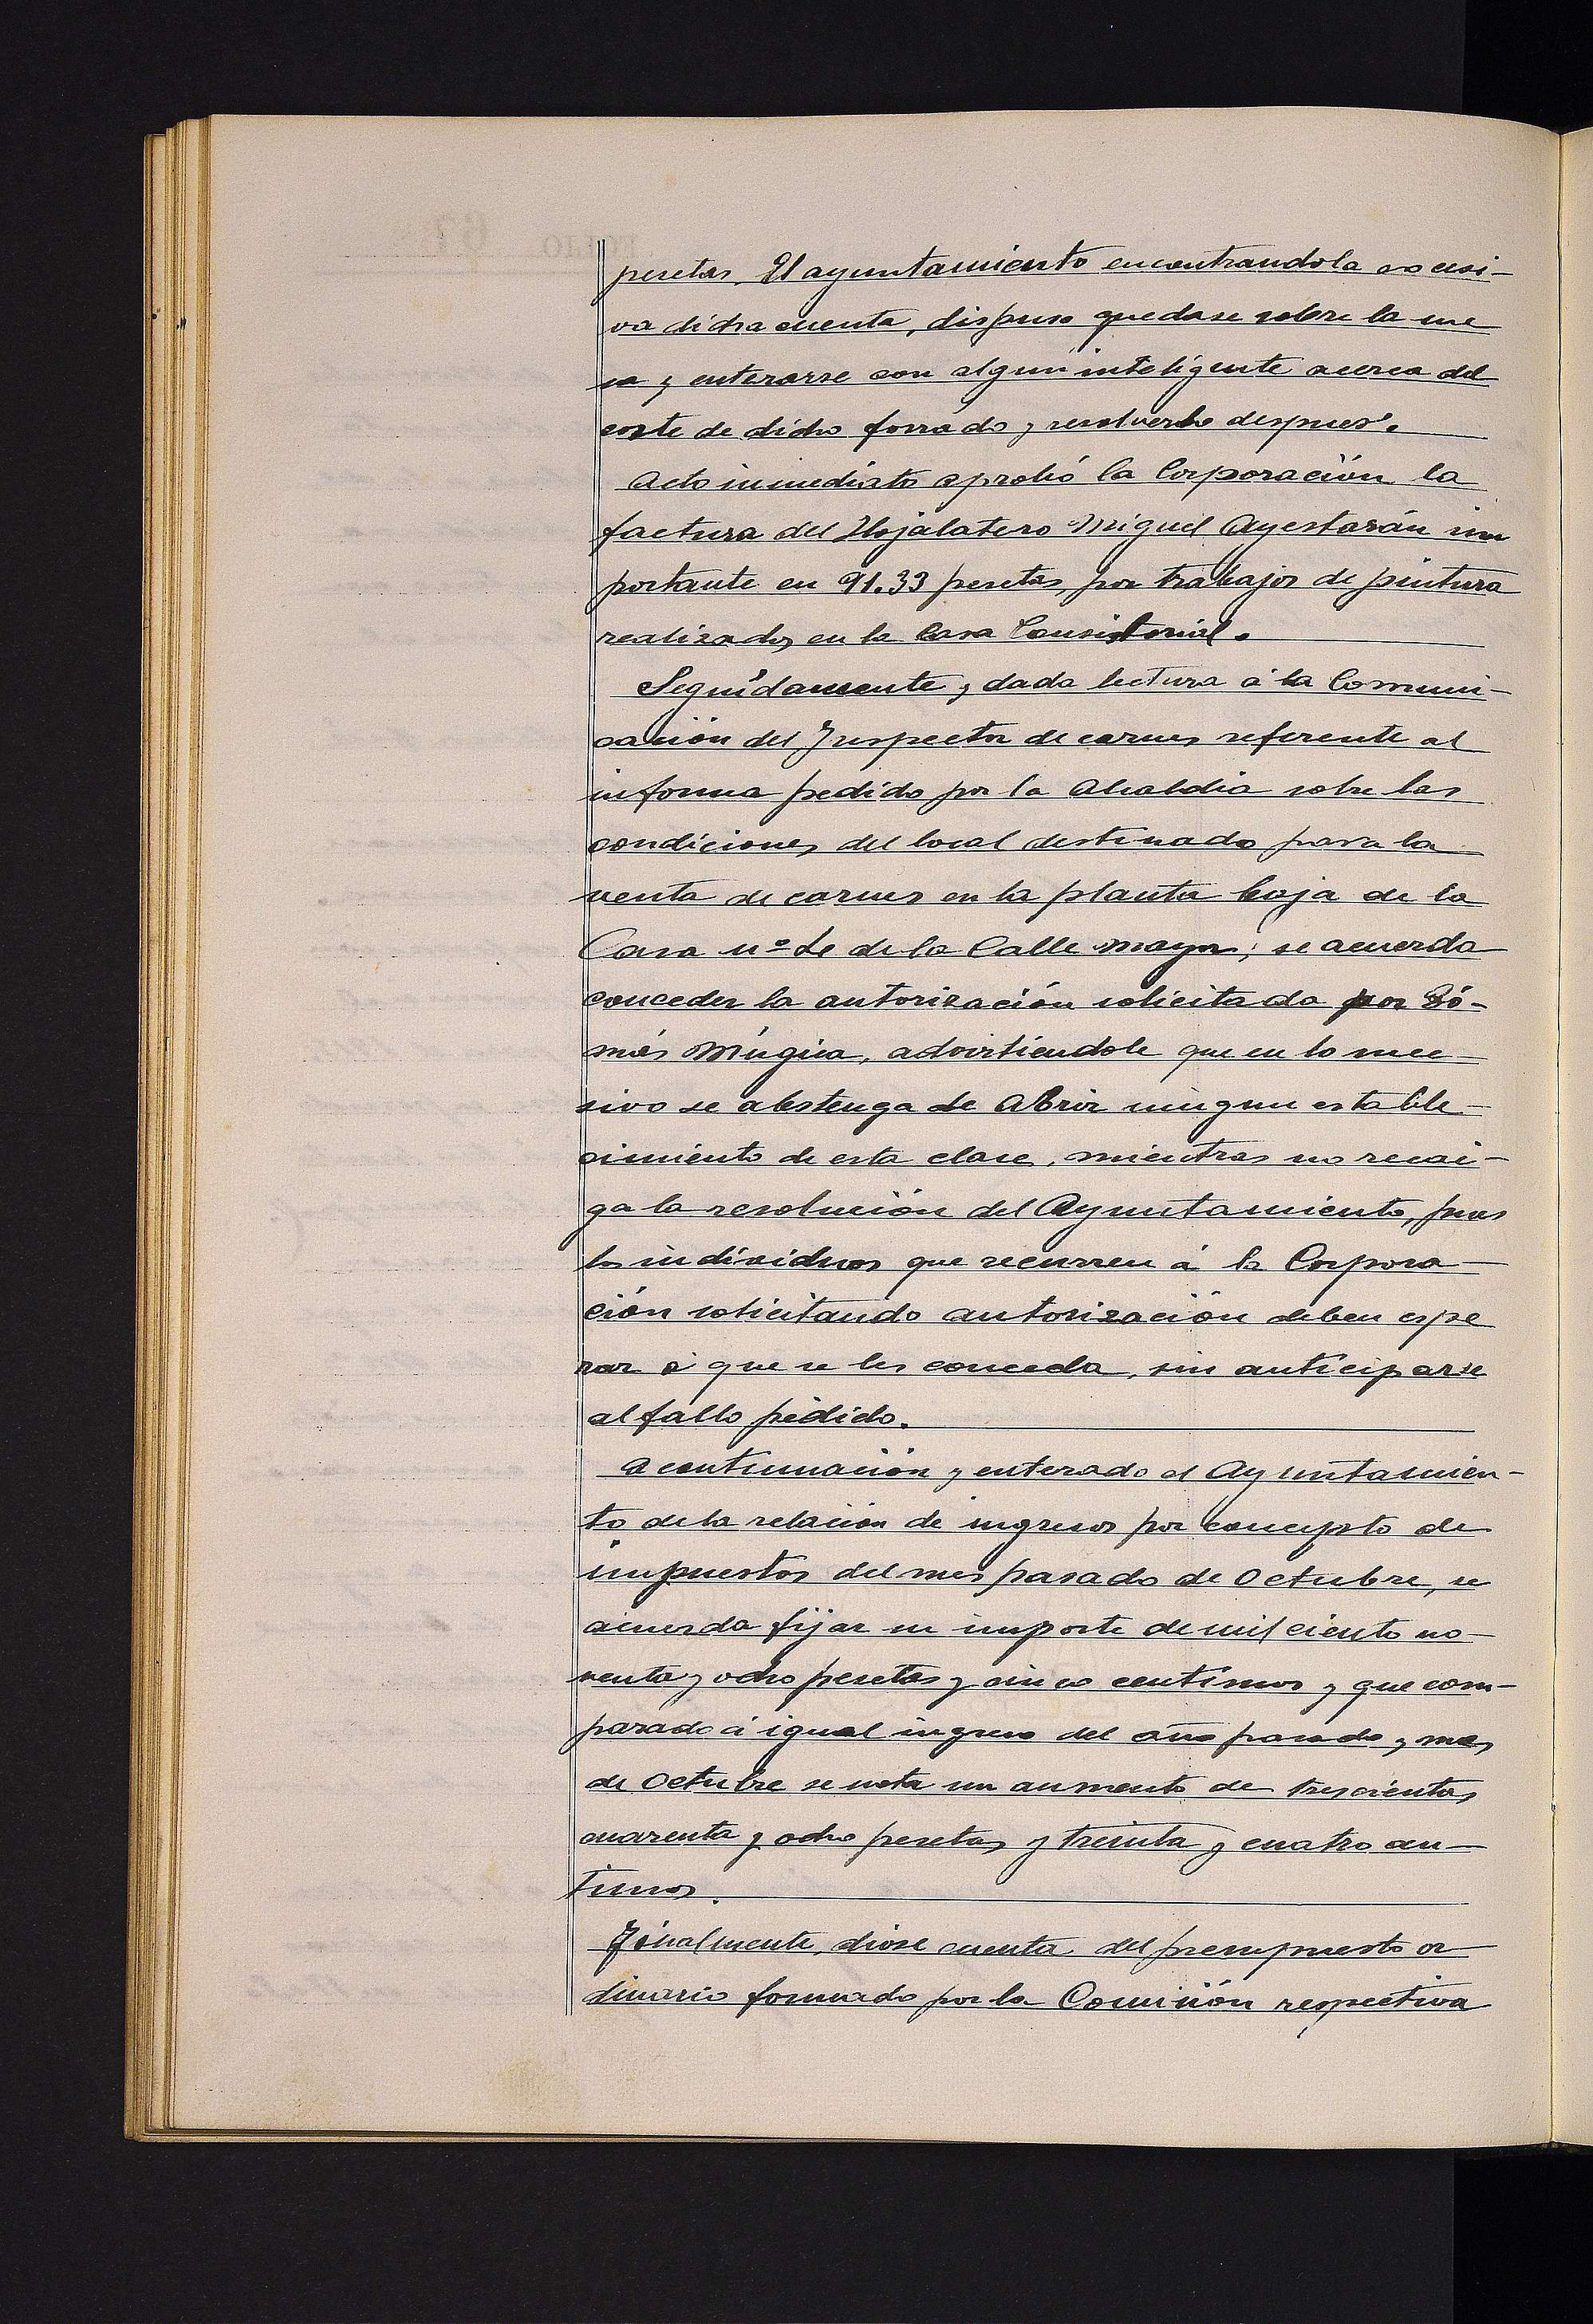 pesetas. El ayuntamiento encontrandola excesi-
va dicha cuenta, dispuso quedase sobre la me
sa y enterarse con algun inteligente acerca del
coste de dicho forrado y resolverlo despues.
Acto inmediato aprobó la Corporación la
factura del Hojalatero Miguel Ayestarán im
portante en 91.33 pesetas, por trabajos de pintura
realizados en la Casa Consistorial.
Seguidamente y dada lectura á la Comuni-
cación del Inspector de carnes referente al
informa pedido por la Alcaldia sobre las
condiciones del local destinado para la
venta de carnes en la planta baja de la
Casa nº de la Calle mayor; se acuerda
conceder la autorización solicitada por Tó-
más Múgica, advirtiendole que en lo suce-
sivo se abstenga de abrir ningun estable-
cimiento de esta clase, mientras no recai-
ga la resolución del Ayuntamiento, pues
los individuos que recurren á la Corpora-
ción solicitando autorización deben espe
rar á que se les conceda, sin anticiparse
al fallo pedido.
A continuación y enterado el Ayuntamien-
to de la relación de ingresos por concepto de
impuestos del mes pasado de Octubre, se
acuerda fijar su importe de mil ciento no-
venta y ocho pesetas y cinco centimos y que com-
parado á igual ingreso del año pasado y mes
de Octubre se nota un aumento de trescientas
cuarenta y ocho pesetas y treinta y cuatro cen-
timos.
Finalmente, diose cuenta del presupuesto or
dinario formado por la Comisión respectiva